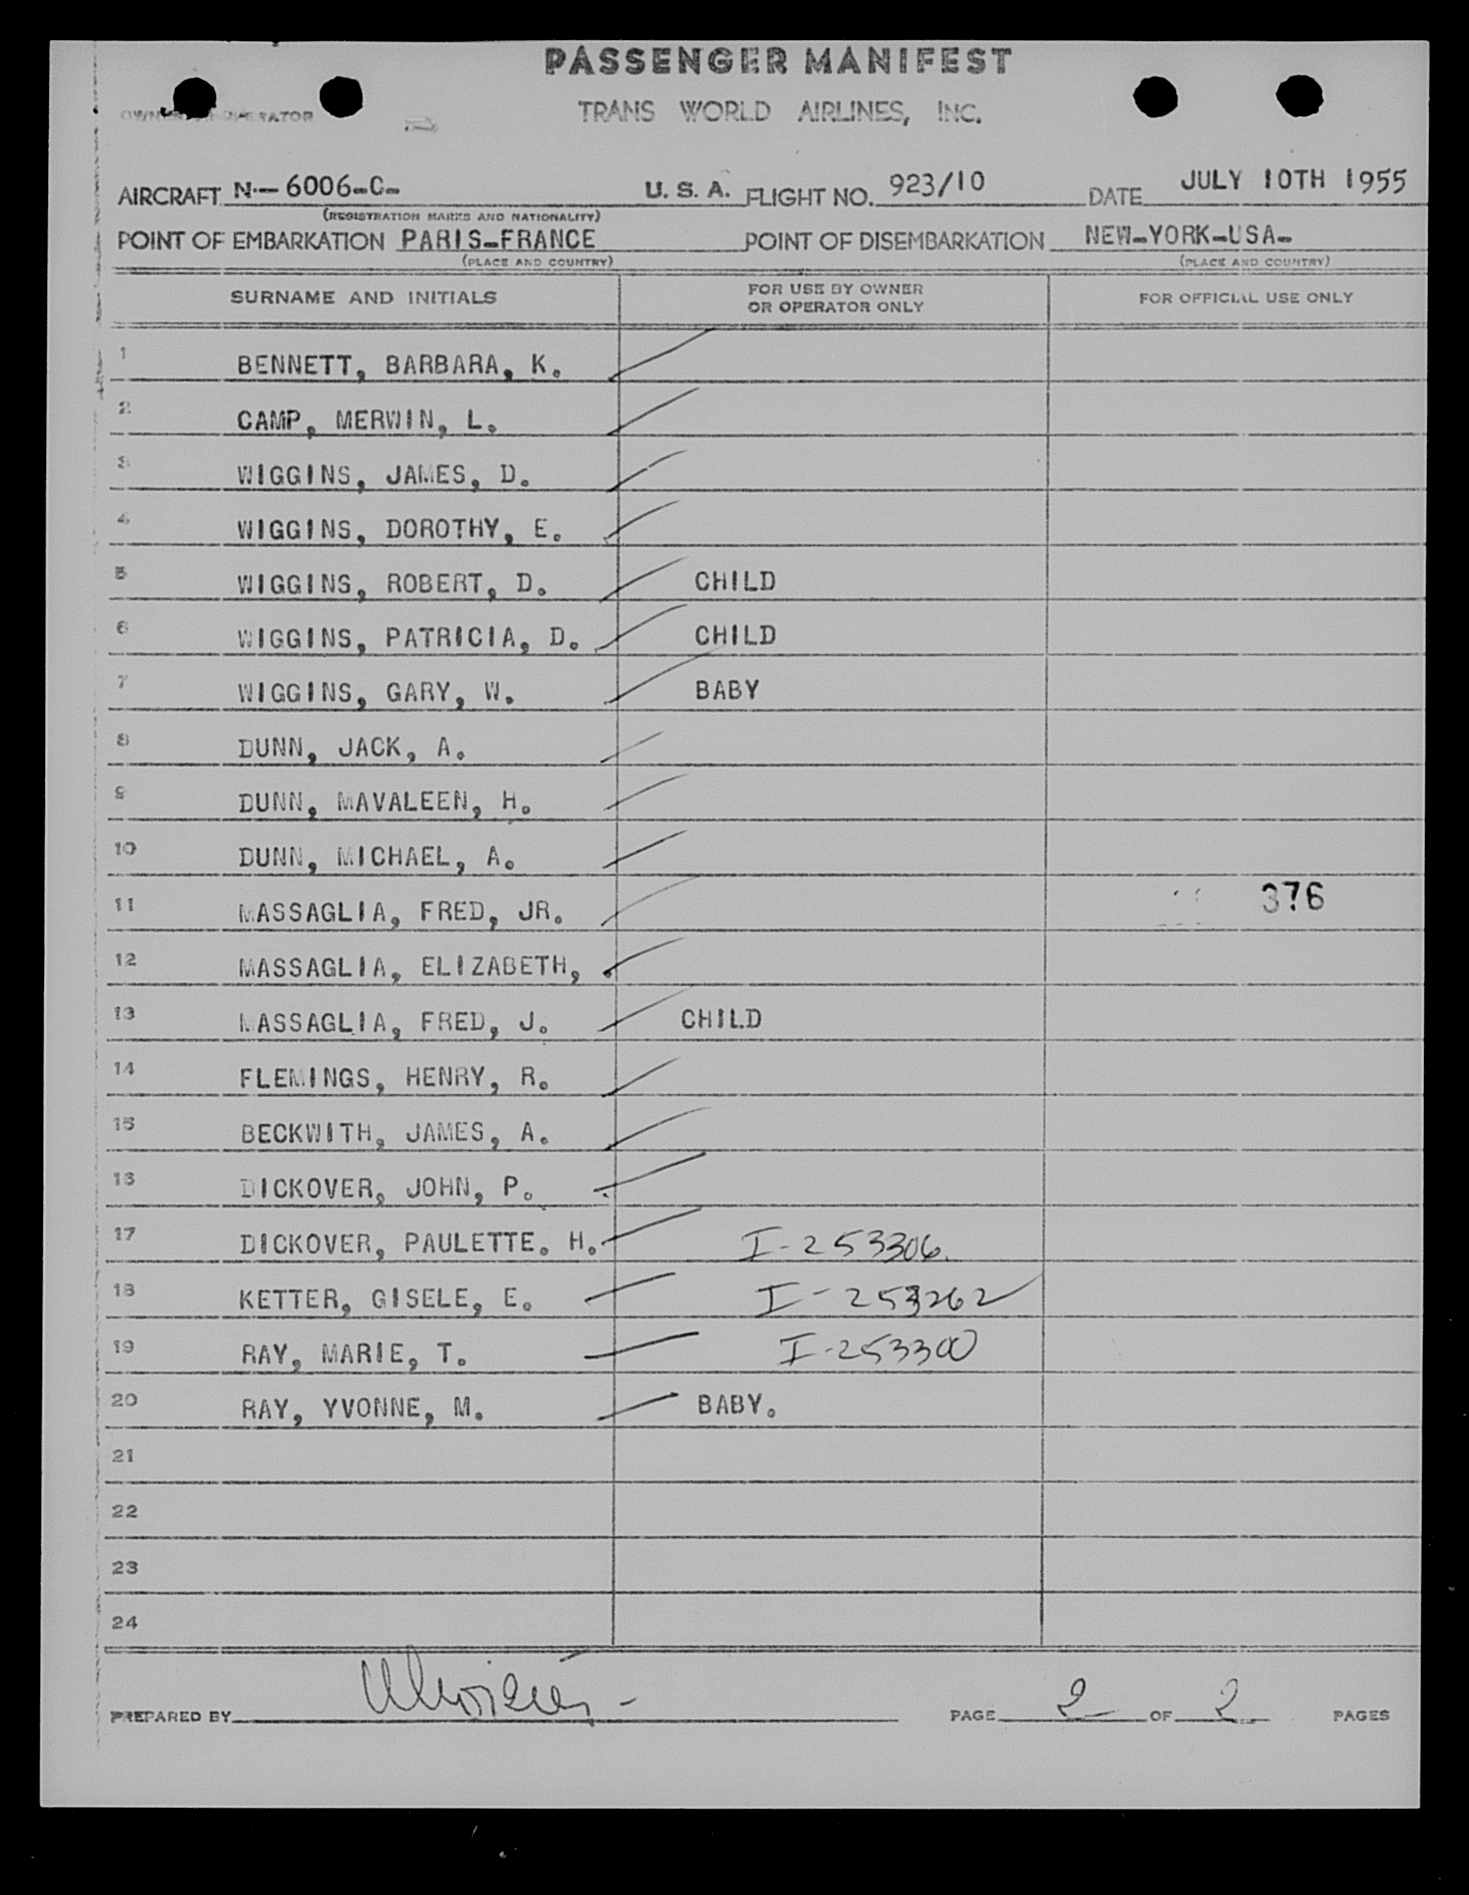 PASSENGER MANIFEST
OWNER OR OPERATOR TRANS WORLD AIRLINES, INC.
AIRCRAFT N-- 6006-C- U. S. A. FLIGHT NO. 923/10 DATE JULY 10TH 1955
(REGISTRATION MARKS AND NATIONALITY)
POINT OF EMBARKATION PARIS-FRANCE POINT OF DISEMBARKATION NEW-YORK-USA-
(PLACE AND COUNTRY) (PLACE AND COUNTRY)
SURNAME AND INITIALS FOR USE BY OWNER OR OPERATOR ONLY FOR OFFICIAL USE ONLY
1 BENNETT, BARBARA, K.
2 CAMP, MERWIN, L.
3 WIGGINS, JAMES, D.
4 WIGGINS, DOROTHY, E.
5 WIGGINS, ROBERT, D. CHILD
6 WIGGINS, PATRICIA, D. CHILD
7 WIGGINS, GARY, W. BABY
8 DUNN, JACK, A.
9 DUNN, MAVALEEN, H.
10 DUNN, MICHAEL, A.
11 MASSAGLIA, FRED, JR. 376
12 MASSAGLIA, ELIZABETH, .
13 MASSAGLIA, FRED, J. CHILD
14 FLEMINGS, HENRY, R.
15 BECKWITH, JAMES, A.
16 DICKOVER, JOHN, P.
17 DICKOVER, PAULETTE. H. I-253306.
18 KETTER, GISELE, E. I-253262
19 RAY, MARIE, T. I-253300
20 RAY, YVONNE, M. BABY.
21
22
23
24
PREPARED BY PAGE 2 OF 2 PAGES